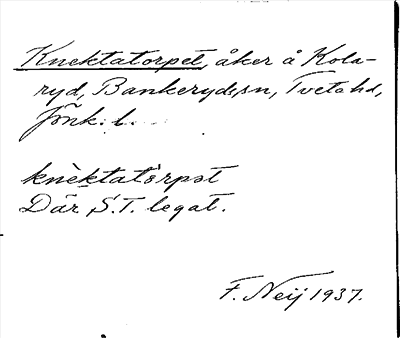 Knektatorpet, åker å Kola-
ryd, Bankeryds sn, Tveta hd,
Jönk. l.
knèktatò̀rpət
Där S.T. legat.
F. Neij 1937.